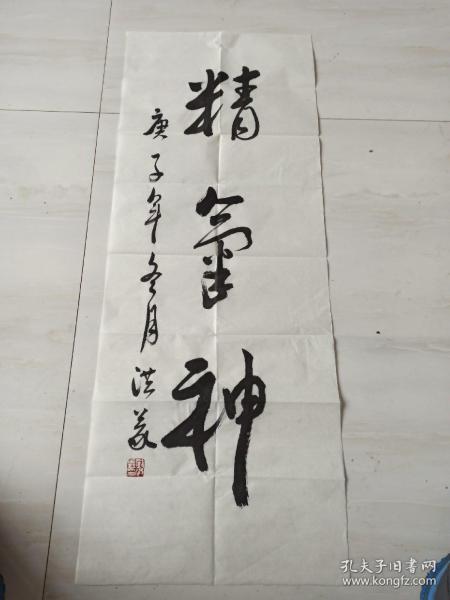 精氣神
庚子年冬月 洪義
孔夫子旧书网
www.kongfz.com